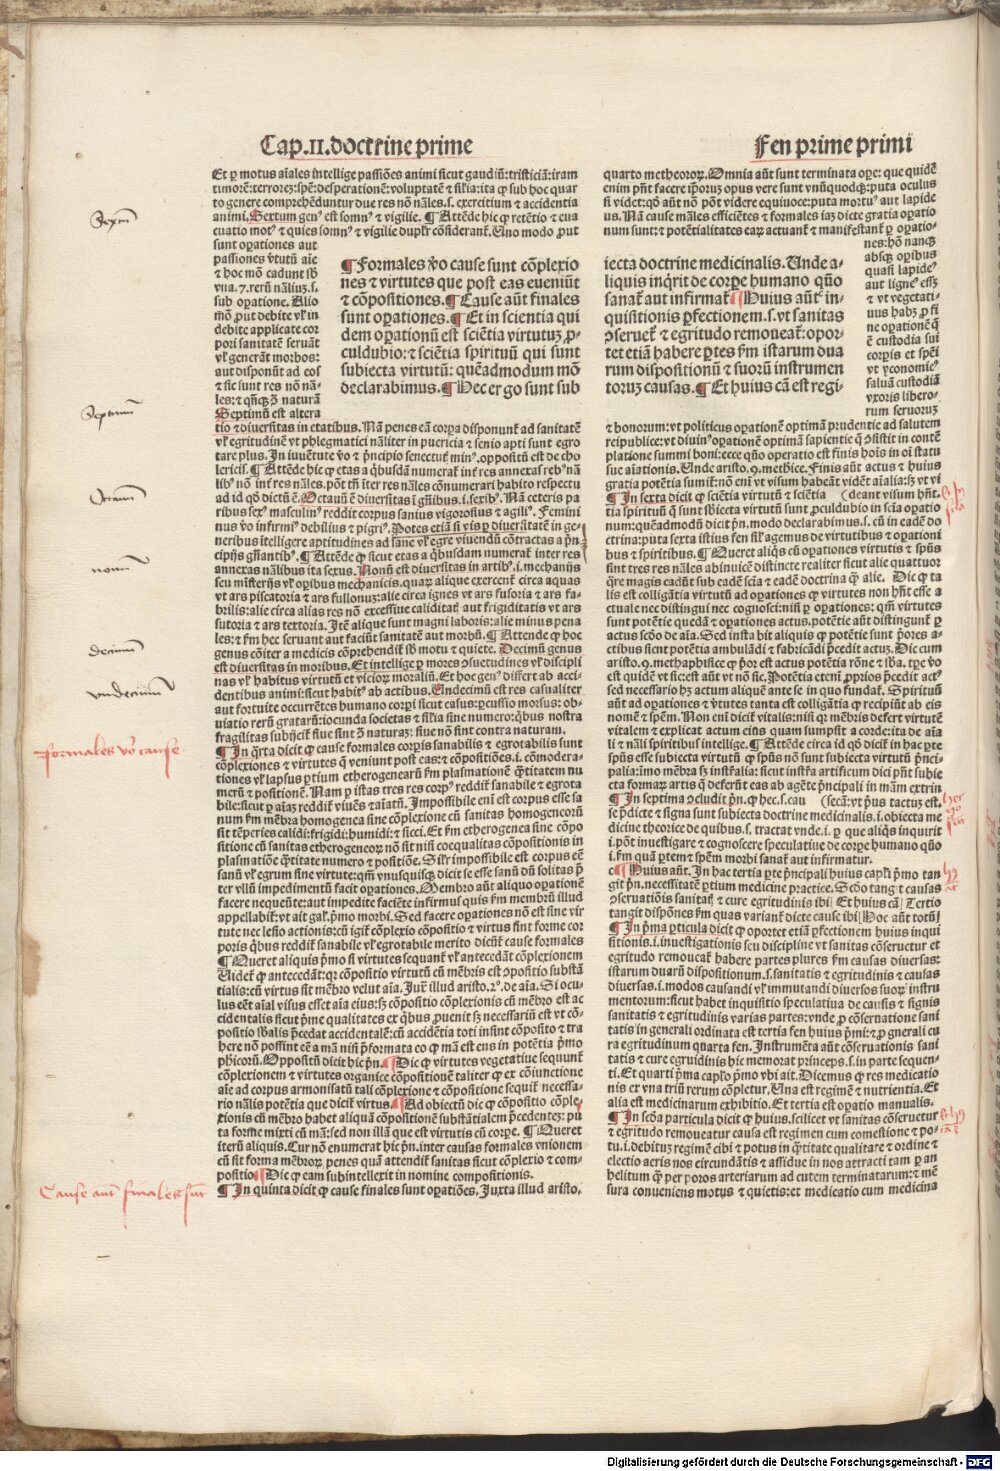 Cap.II.doctrine prime
Fen prime primi
Et ꝑ motus aĩales intellige passiões animi sicut gaudiũ:tristiciã:iram
timorẽ:terrorez:spẽ:desperationẽ:voluptatẽ ⁊ silia:ita ꝙ sub hoc quar
to genere comprehẽduntur due res nõ nãles.s. exercitium ⁊ accidentia
animi. Sextum genꝰ est somnꝰ ⁊ vigilie. ¶ Attẽde hic ꝙ retẽtio ⁊ eua
cuatio motꝰ ⁊ quies somnꝰ ⁊ vigilie duplr cõsiderant̃. Uno modo ꝓut
sunt oꝑationes aut
passiones vtutũ aĩe
⁊ hoc mõ cadunt sb̃
vna .7. rerũ nãliuz.s.
sub oꝑatione. Alio
mõ ꝓut debite vl̃ in
debite applicate cor
pori sanitatẽ seruãt
vl̃ generãt morbos:
aut disponũt ad eos
⁊ sic sunt res nõ nã-
les:⁊ qñqꝫ ꝯ̃ naturã
Septimũ est altera
¶ Formales ṽo cause sunt cõplexio
nes ⁊ virtutes que post eas eueniũt
⁊ cõpositiones.¶ Cause aũt finales
sunt oꝑationes.¶ Et in scientia qui
dem oꝑationũ est sciẽtia virtutuz ꝓ-
culdubio:⁊ sciẽtia spirituũ qui sunt
subiecta virtutũ: quẽadmodum mõ
declarabimus.¶ Hec ergo sunt sub
tio ⁊ diuersitas in etatibus. Nã penes eã corpa disponunt̃ ad sanitatẽ
vl̃ egritudinẽ vt phlegmatici nãliter in puericia ⁊ senio apti sunt egro
tare plus. In iuuẽtute vo ⁊ p̃ncipio senectut̃ minꝰ. oppositũ est de cho
lericis.¶ Attẽde hic ꝙ etas a q̃busdã numerat̃ int̃ res annexas rebꝰ nã
libꝰ nõ int̃ res nãles. põt tñ iter res nãles cõnumerari habito respectu
ad id qd̃ dictũ ẽ. Octauũ ẽ diuersitas ĩ gñibus.i.sexibꝰ. Nã ceteris pa
ribus sexꝰ masculinꝰ reddit corpus sanius vigorosius ⁊ agilꝰ. Femini
nus ṽo infirmiꝰ debilius ⁊ pigriꝰ. Potes etiã si vis ꝑ diuersitatẽ in ge-
neribus ĩtelligere aptitudines ad sane vl̃ egre viuendũ cõtractas a p̃n
cipijs gñantibꝰ.¶ Attẽde ꝙ sicut etas a q̃busdam numerat̃ inter res
annexas nãlibus ita sexus. Nonũ est diuersitas in artibꝰ.i. mechanijs
seu mĩsterijs vl̃ oꝑibus mechanicis. quaꝝ alique exercent̃ circa aquas
vt ars piscatoria ⁊ ars fullonuz:alie circa ignes vt ars fusoria ⁊ ars fa-
brilis:alie circa alias res nõ excessiue caliditat̃ aut frigiditatis vt ars
sutoria ⁊ ars textoria. Itẽ alique sunt magni laboris:alie minus pena
les:⁊ s̃m hec seruant aut faciũt sanitatẽ aut morbũ.¶ Attende ꝙ hoc
genus cõiter a medicis cõprehendit̃ sb̃ motu ⁊ quiete. Decimũ genus
est diuersitas in moribus. Et intellige ꝑ mores ꝯsuetudines vl̃ discipli
nas vl̃ habitus virtutũ et vicioꝝ moraliũ. Et hoc genꝰ differt ab acci-
dentibus animi:sicut habitꝰ ab actibus. Undecimũ est res casualiter
aut fortuite occurrẽtes humano corpi sicut casus:ꝑcussio morsus: ob-
uiatio rerũ gratarũ:iocunda societas ⁊ silia sine numero:q̃bus nostra
fragilitas subijcit̃ siue sint ꝯ̃ naturaz: siue nõ sint contra naturam.
¶ In q̃rta dicit ꝙ cause formales corpis sanabilis ⁊ egrotabilis sunt
cõplexiones ⁊ virtutes q̃ veniunt post eas:⁊ cõpositiões.i. cõmodera-
tiones vl̃ lapsus ꝑtium etherogenearũ s̃m plasmationẽ q̃titatem nu
merũ ⁊ positionẽ. Nam ꝑ istas tres res corpꝰ reddit̃ sanabile ⁊ egrota
bile:sicut ꝑ aĩaz reddit̃ viuẽs ⁊ aĩatũ. Impossibile eni est corpus esse sa
num s̃m mẽbra homogenea sine cõplexione cũ sanitas homogeneorũ
sit tẽperies calidi:frigidi:humidi:⁊ sicci. Et s̃m etherogenea sine cõpo
sitione cũ sanitas etherogeneoꝝ nõ sit nisi coequalitas cõpositionis in
plasmatiõe q̃titate numero ⁊ positiõe. Silr̃ impossibile est corpus eẽ
sanũ vl̃ egrum sine virtute:qm̃ vnusquisqꝫ dicit̃ se esse sanũ dũ solitas p̃
ter vllũ impedimentũ facit oꝑationes. Membro aut aliquo oꝑationẽ
facere nequeũte:aut impedite faciẽte infirmus quis s̃m membrũ illud
appellabit̃:vt ait gal.p̃mo morbi. Sed facere oꝑationes nõ est sine vir
tute nec lesio actionis:cũ igit̃ cõplexio cõpositio ⁊ virtus sint forme cor
poris q̃bus reddit̃ sanabile vl̃ egrotabile merito dicunt̃ cause formales
¶ Queret aliquis p̃mo si virtutes sequant̃ vl̃ antecedãt cõplexionem
Uidet̃ ꝙ antecedãt:qꝛ cõpositio virtutũ cũ mẽbris est ꝯpositio substã
tialis:cũ virtus sit mẽbro velut aĩa. Iux̃ illud aristo.2°.de aĩa. Si ocu-
lus eẽt aĩal visus esset aĩa eius:sꝫ cõpositio cõplexionis cũ mẽbro est ac
cidentalis sicut p̃me qualitates ex q̃bus ꝓuenit sꝫ necessariũ est vt cõ-
positio sb̃alis p̃cedat accidentalẽ:cũ accidẽtia toti insint cõposito ⁊ tra
here nõ possint eẽ a mã nisi p̃formata eo ꝙ mã est ens in potẽtia p̃mo
ph̃icorũ. Oppositũ dicit hic p̃n.¶ Dic ꝙ virtutes vegetatiue sequunt̃
cõplexionem ⁊ virtutes organice cõpositionẽ taliter ꝙ ex cõiunctione
aĩe ad corpus armonisatũ tali cõplexione ⁊ cõpositione sequit̃ necessa-
rio nãlis potẽtia que dicit̃ virtus.¶ Ad obiectũ dic ꝙ cõpositio cõple-
xionis cũ mẽbro habet aliquã cõpositionẽ substãtialem p̃cedentez: pu
ta forme mixti cũ mã:sed non illã que est virtutis cũ corpe. ¶ Queret
tertiũ aliquis. Cur nõ enumerat hic p̃n. inter causas formales vnionem
cũ sit forma mẽbroꝝ penes quã attendit̃ sanitas sicut cõplexio ⁊ com-
positio.¶ Dic ꝙ eam subintellexit in nomine compositionis.
¶ In quinta dicit ꝙ cause finales sunt oꝑatiões. Juxta illud aristo.
quarto metheoroꝝ. Omnia aũt sunt terminata oꝑe: que quidẽ
enim pñt facere ip̃oruz opus vere sunt vnũquodqꝫ:puta oculus
si videt:qd̃ aũt nõ põt videre equiuoce:puta mortuꝰ aut lapide
us. Nã cause mãles efficiẽtes ⁊ formales iaz dicte gratia oꝑatio
num sunt:⁊ potẽtialitates earꝫ actuant̃ ⁊ manifestant̃ ꝑ oꝑatio-
nes:hõ nanqꝫ
absqꝫ oꝑibus
quasi lapideꝰ
aut ligneꝰ essꝫ
⁊ vt vegetati-
uus habꝫ ꝓ fi
ne oꝑationẽ q̃
ẽ custodia sui
corpis et spẽi
vt yconomicꝰ
saluã custodiã
vxoris libero-
rum seruoruz
iecta doctrine medicinalis. Unde a-
liquis inq̃rit de corpe humano quõ
sanat̃ aut infirmat̃ ¶ Huius aũt in-
quisitionis ꝑfectionem.s.vt sanitas
ꝯseruet̃ ⁊ egritudo remoueat̃:opor-
tet etiã habere ꝑtes s̃m istarum dua
rum dispositionũ ⁊ suorũ instrumen
toruz causas.¶ Et huius cã est regi-
⁊ bonorum:vt politicus oꝑationẽ optimã prudentie ad salutem
reipublice:vt diuinꝰ oꝑationẽ optimã sapientie q̃ ꝯsistit in contẽ
platione summi boni:ecce quõ operatio est finis hoĩs in oĩ statu
sue aĩationis. Unde aristo.9.meth̃ice. Finis aũt actus ⁊ huius
gratia potẽtia sumit̃:nõ eni vt visum habeãt vidẽt aĩalia:sꝫ vt vi
¶ In sexta dicit ꝙ sciẽtia virtutũ ⁊ sciẽtia (deant visum hñt.
tia spirituũ q̃ sunt sb̃iecta virtutũ ꝓculdubio in scĩa oꝑatio
num:quẽadmodũ dicit p̃n. modo declarabimus.s. cũ in eadẽ do
ctrina:puta sexta istius fen sil̃ agemus de virtutibus ⁊ oꝑationi
bus ⁊ spiritibus.¶ Queret aliq̃s cũ oꝑationes virtutis ⁊ spũs
sint tres res nãles abinuicẽ distincte realiter sicut alie quattuor
q̃re magis cadũt sub eadẽ scĩa ⁊ eadẽ doctrina q̃ alie. Dic ꝙ ta
lis est colligãtia virtutũ ad oꝑationes ꝙ virtutes non hñt esse a
ctuale nec distingui nec cognosci:nisi ꝑ oꝑationes: qm̃ virtutes
sunt potẽtie quedã ⁊ oꝑationes actus. potẽtie aũt distingunt̃ ꝑ
actus scd̃o de aĩa. Sed insta bit aliquis ꝙ potẽtie sunt p̃ores a-
ctibus sicut potẽtia ambulãdi ⁊ fabricãdi p̃cedit actuz. Dic cum
aristo.9.metaphisice ꝙ p̃or est actus potẽtia rõne ⁊ sb̃a. tꝑe ṽo
est quidẽ vt sic:est aũt vt nõ sic. Potẽtia eteni p̃prios p̃cedit actꝰ
sed necessario hꝫ actum aliquẽ ante se in quo fundat̃. Spirituũ
aũt ad oꝑationes ⁊ vtutes tanta est colligãtia ꝙ recipiũt ab eis
nomẽ ⁊ spẽm. Non eni dicit̃ vitalis:nisi qꝛ mẽbris defert virtutẽ
vitalem ⁊ explicat actum eius quam sumpsit a corde:ita de aĩa
li ⁊ nãli spiritibus intellige.¶ Attẽde circa id qd̃ dicit̃ in hac ꝑte
spũs esse subiecta virtutũ ꝙ spũs nõ sunt subiecta virtutũ p̃nci-
palia:ĩmo mẽbra sꝫ inst̃alia:sicut inst̃a artificum dici pñt subie
cta formaꝝ artis q̃ deferũt eas ab agẽte p̃ncipali in mãm extrin
¶ In septima ꝯcludit p̃n. ꝙ hec.s. cau (secã:vt p̃us tactuz est.
se p̃dicte ⁊ signa sunt subiecta doctrine medicinalis.i.obiecta me
dicine theorice de quibus.s. tractat vnde.i. ꝑ que aliq̃s inquirit
i.põt inuestigare ⁊ cognoscere speculatiue de corpe humano quõ
i.s̃m quã ꝑtem ⁊ spẽm morbi sanat̃ aut infirmatur.
c¶ Huius aũt. In hac tertia ꝑte p̃ncipali huius capl̃i p̃mo tan
git p̃n.necessitatẽ ꝑtium medicine practice. Scd̃o tangit causas
ꝯseruatiõis sanitat̃ ⁊ cure egritudinis ibi( Et huius cã( Tertio
tangit dispõnes s̃m quas variant̃ dicte cause ibi( Hoc aũt totũ(
¶ In p̃ma ꝑticula dicit ꝙ oportet etiã ꝑfectionem huius inqui
sitionis.i.inuestigationis seu discipline vt sanitas cõseruetur et
egritudo remoueat̃ habere partes plures s̃m causas diuersas:
istarum duarũ dispositionum.s.sanitatis ⁊ egritudinis ⁊ causas
diuersas.i. modos causandi vl̃ immutandi diuersos suorꝫ instru
mentorum:sicut habet inquisitio speculatiua de causis ⁊ signis
sanitatis ⁊ egritudinis varias partes:vnde ꝓ cõseruatione sani
tatis in generali ordinata est tertia fen huius p̃mi:⁊ ꝓ gñerali cu
ra egritudinum quarta fen. Instrumẽta aũt cõseruationis sani
tatis ⁊ cure egruidinis hic memorat princeps.s.in parte sequen-
ti. Et quarti p̃ma capl̃o p̃mo vbi ait. Dicemus ꝙ res medicatio
nis ex vna triũ rerum cõpletur. Una est regimẽ ⁊ nutrientia. Et
alia est medicinarum exhibitio. Et tertia est oꝑatio manualis.
¶ In scd̃a particula dicit ꝙ huius.scilicet vt sanitas cõseruetur
⁊ egritudo remoueatur causa est regimen cum comestione ⁊ po-
tu.i. debituz regimẽ cibi ⁊ potus in q̃titate qualitate ⁊ ordine ⁊
electio aeris nos circundãtis ⁊ assidue in nos attracti tam ꝑ an
helitum q̃ per poros arteriarum ad cutem terminatarum:⁊ mẽ
sura conueniens motus ⁊ quietis:et medicatio cum medicina
Sextũ
Septimũ
Octauũ
nonũ
decimũ
vndecimũ
formales vo cause
Cause aut finales sunt
Digitalisierung gefördert durch die Deutsche Forschungsgemeinschaft - DFG